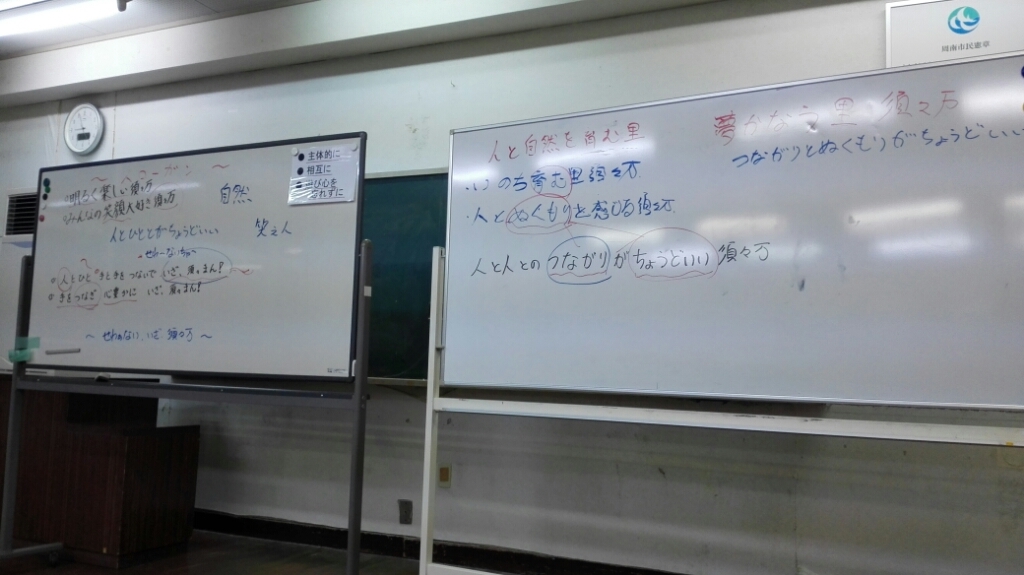 ～スローガン～
明るく楽しい須々万
みんなの笑顔大好き須々万
自然
人とひととがちょうどいい
笑え人
せわーないちゃ～
人とひと 手と手をつないで いざ、須々まん？
手をつなぎ 心豊かに いざ、須々まん？
～せわぁない、いざ 須々万～
●主体的に
●相互に
●遊び心を
忘れずに
人と自然を育む里
・いのち育む里須々万
・人とぬくもりを感じる須々万
人と人とのつながりがちょうどいい 須々万
夢かなう里 須々万
つながりとぬくもりがちょうどいい
周南市民憲章